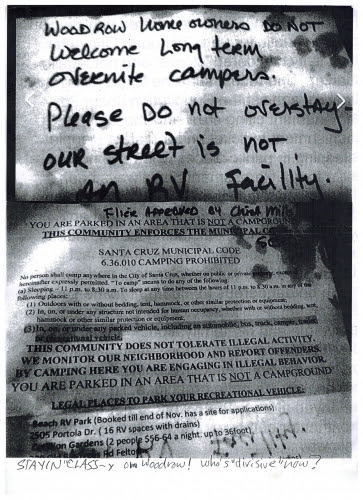 WOODROW Home owners DO NOT
Welcome Long term
overnite campers.
Please Do not overstay
our street is not
an RV Facility.
Flier Approved By Chief
YOU ARE PARKED IN AN AREA THAT IS NOT A CAMPGROUND
THIS COMMUNITY ENFORCES THE MUNICIPAL
SANTA CRUZ MUNICIPAL CODE
6.36.010 CAMPING PROHIBITED
No person shall camp anywhere in the City of Santa Cruz, whether on public or private property, except as
hereinafter expressly permitted. "To camp" means to do any of the following:
(a) Sleeping – 11 p.m. to 8:30 a.m. To sleep at any time between the hours of 11 p.m. to 8:30 a.m. in any of the
following places:
(1) Outdoors with or without bedding, tent, hammock, or other similar protection or equipment;
(2) In, on, or under any structure not intended for human occupancy, whether with or without bedding, tent,
hammock or other similar protection or equipment;
(3) In, on, or under any parked vehicle, including an automobile, bus, truck, camper,
or recreational vehicle
THIS COMMUNITY DOES NOT TOLERATE ILLEGAL ACTIVITY.
WE MONITOR OUR NEIGHBORHOOD AND REPORT OFFENDERS.
BY CAMPING HERE YOU ARE ENGAGING IN ILLEGAL BEHAVIOR.
YOU ARE PARKED IN AN AREA THAT IS NOT A CAMPGROUND
LEGAL PLACES TO PARK YOUR RECREATIONAL VEHICLE:
Beach RV Park (Booked till end of Nov. has a site for applications)
2505 Portola Dr. ( 16 RV spaces with drains)
Gardens (2 people $56-64 a night. up to 36foot)
Rd Felton
STAYIN "CLASS-y on Woodrow! who's "divisive" now?